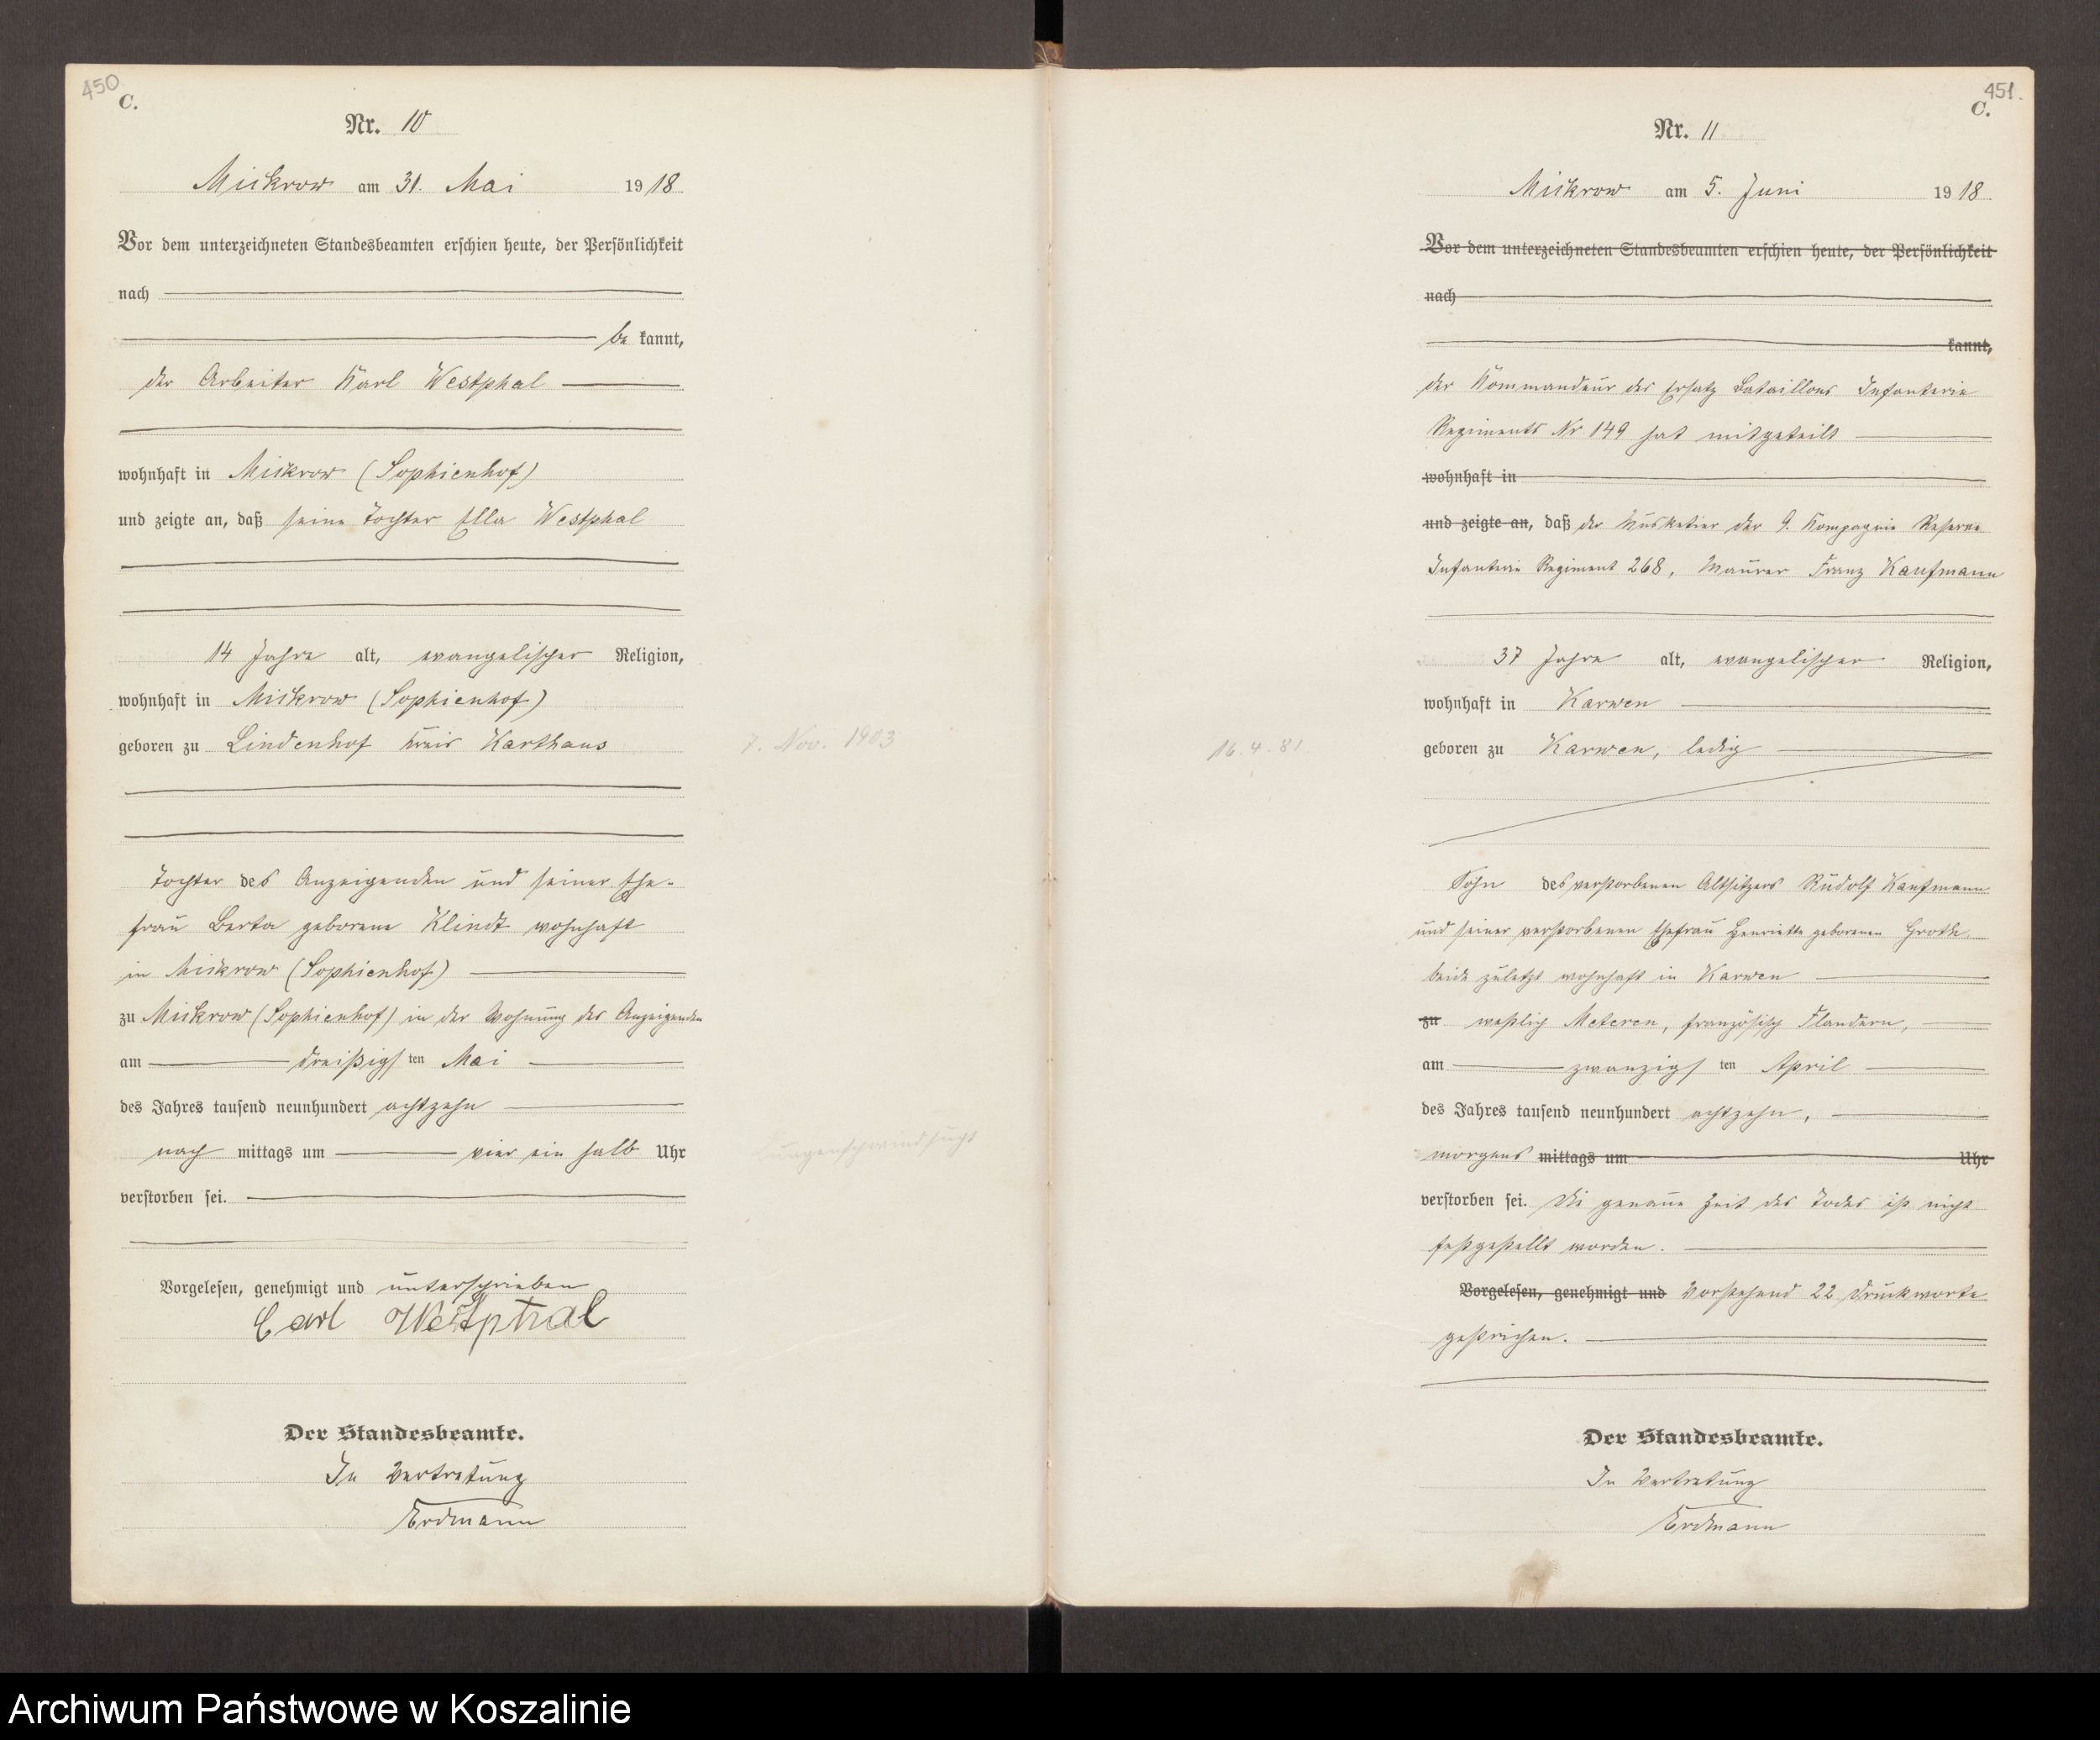 450
C.
Nr. 10
Mickrow am 31. Mai 1918
Vor dem unterzeichneten Standesbeamten erschien heute, der Persönlichkeit
nach
be kannt,
der Arbeiter Karl Westphal
wohnhaft in Mickrow (Sophienhof)
und zeigte an, daß seine Tochter Ella Westphal
14 Jahre alt, evangelischer Religion,
wohnhaft in Mickrow (Sophienhof)
geboren zu Lindenhof Kreis Karthaus
7. Nov. 1903
Tochter des Anzeigenden und seiner Ehe-
frau Berta geborene Klindt wohnhaft
in Mickrow (Sophienhof)
zu Mickrow (Sophienhof) in der Wohnung des Anzeigenden
am dreißigsten Mai
des Jahres tausend neunhundert achtzehn
nach mittags um vier ein halb Uhr
Lungenschwindsucht
verstorben sei.
Vorgelesen, genehmigt und unterschrieben
Carl Westphal
Der Standesbeamte.
In Vertretung
Erdmann
451.
C.
Nr. 11
Mickrow am 5. Juni 1918
Vor dem unterzeichneten Standesbeamten erschien heute, der Persönlichkeit
nach
kannt,
der Kommandeur des Ersatz Bataillons Infanterie
Regiments Nr 149 hat mitgeteilt
wohnhaft in
und zeigte an, daß der Musketier der 9. Kompagnie Reserve
Infanterie Regiment 268, Maurer Franz Kaufmann
37 Jahre alt, evangelischer Religion,
wohnhaft in Karwen
geboren zu Karwen, ledig
16.4.81
Sohn des verstorbenen Altsitzers Rudolf Kaufmann
und seiner verstorbenen Ehefrau Henriette geborenen Grothe
beide zuletzt wohnhaft in Karwen
zu westlich Meteren, französisch Flandern,
am zwanzigsten April
des Jahres tausend neunhundert achtzehn,
morgens mittags um Uhr
verstorben sei. Die genaue Zeit des Todes ist nicht
festgestellt worden.
Vorgelesen, genehmigt und Vorstehend 22 Druckworte
gestrichen.
Der Standesbeamte.
In Vertretung
Erdmann
Archiwum Państwowe w Koszalinie